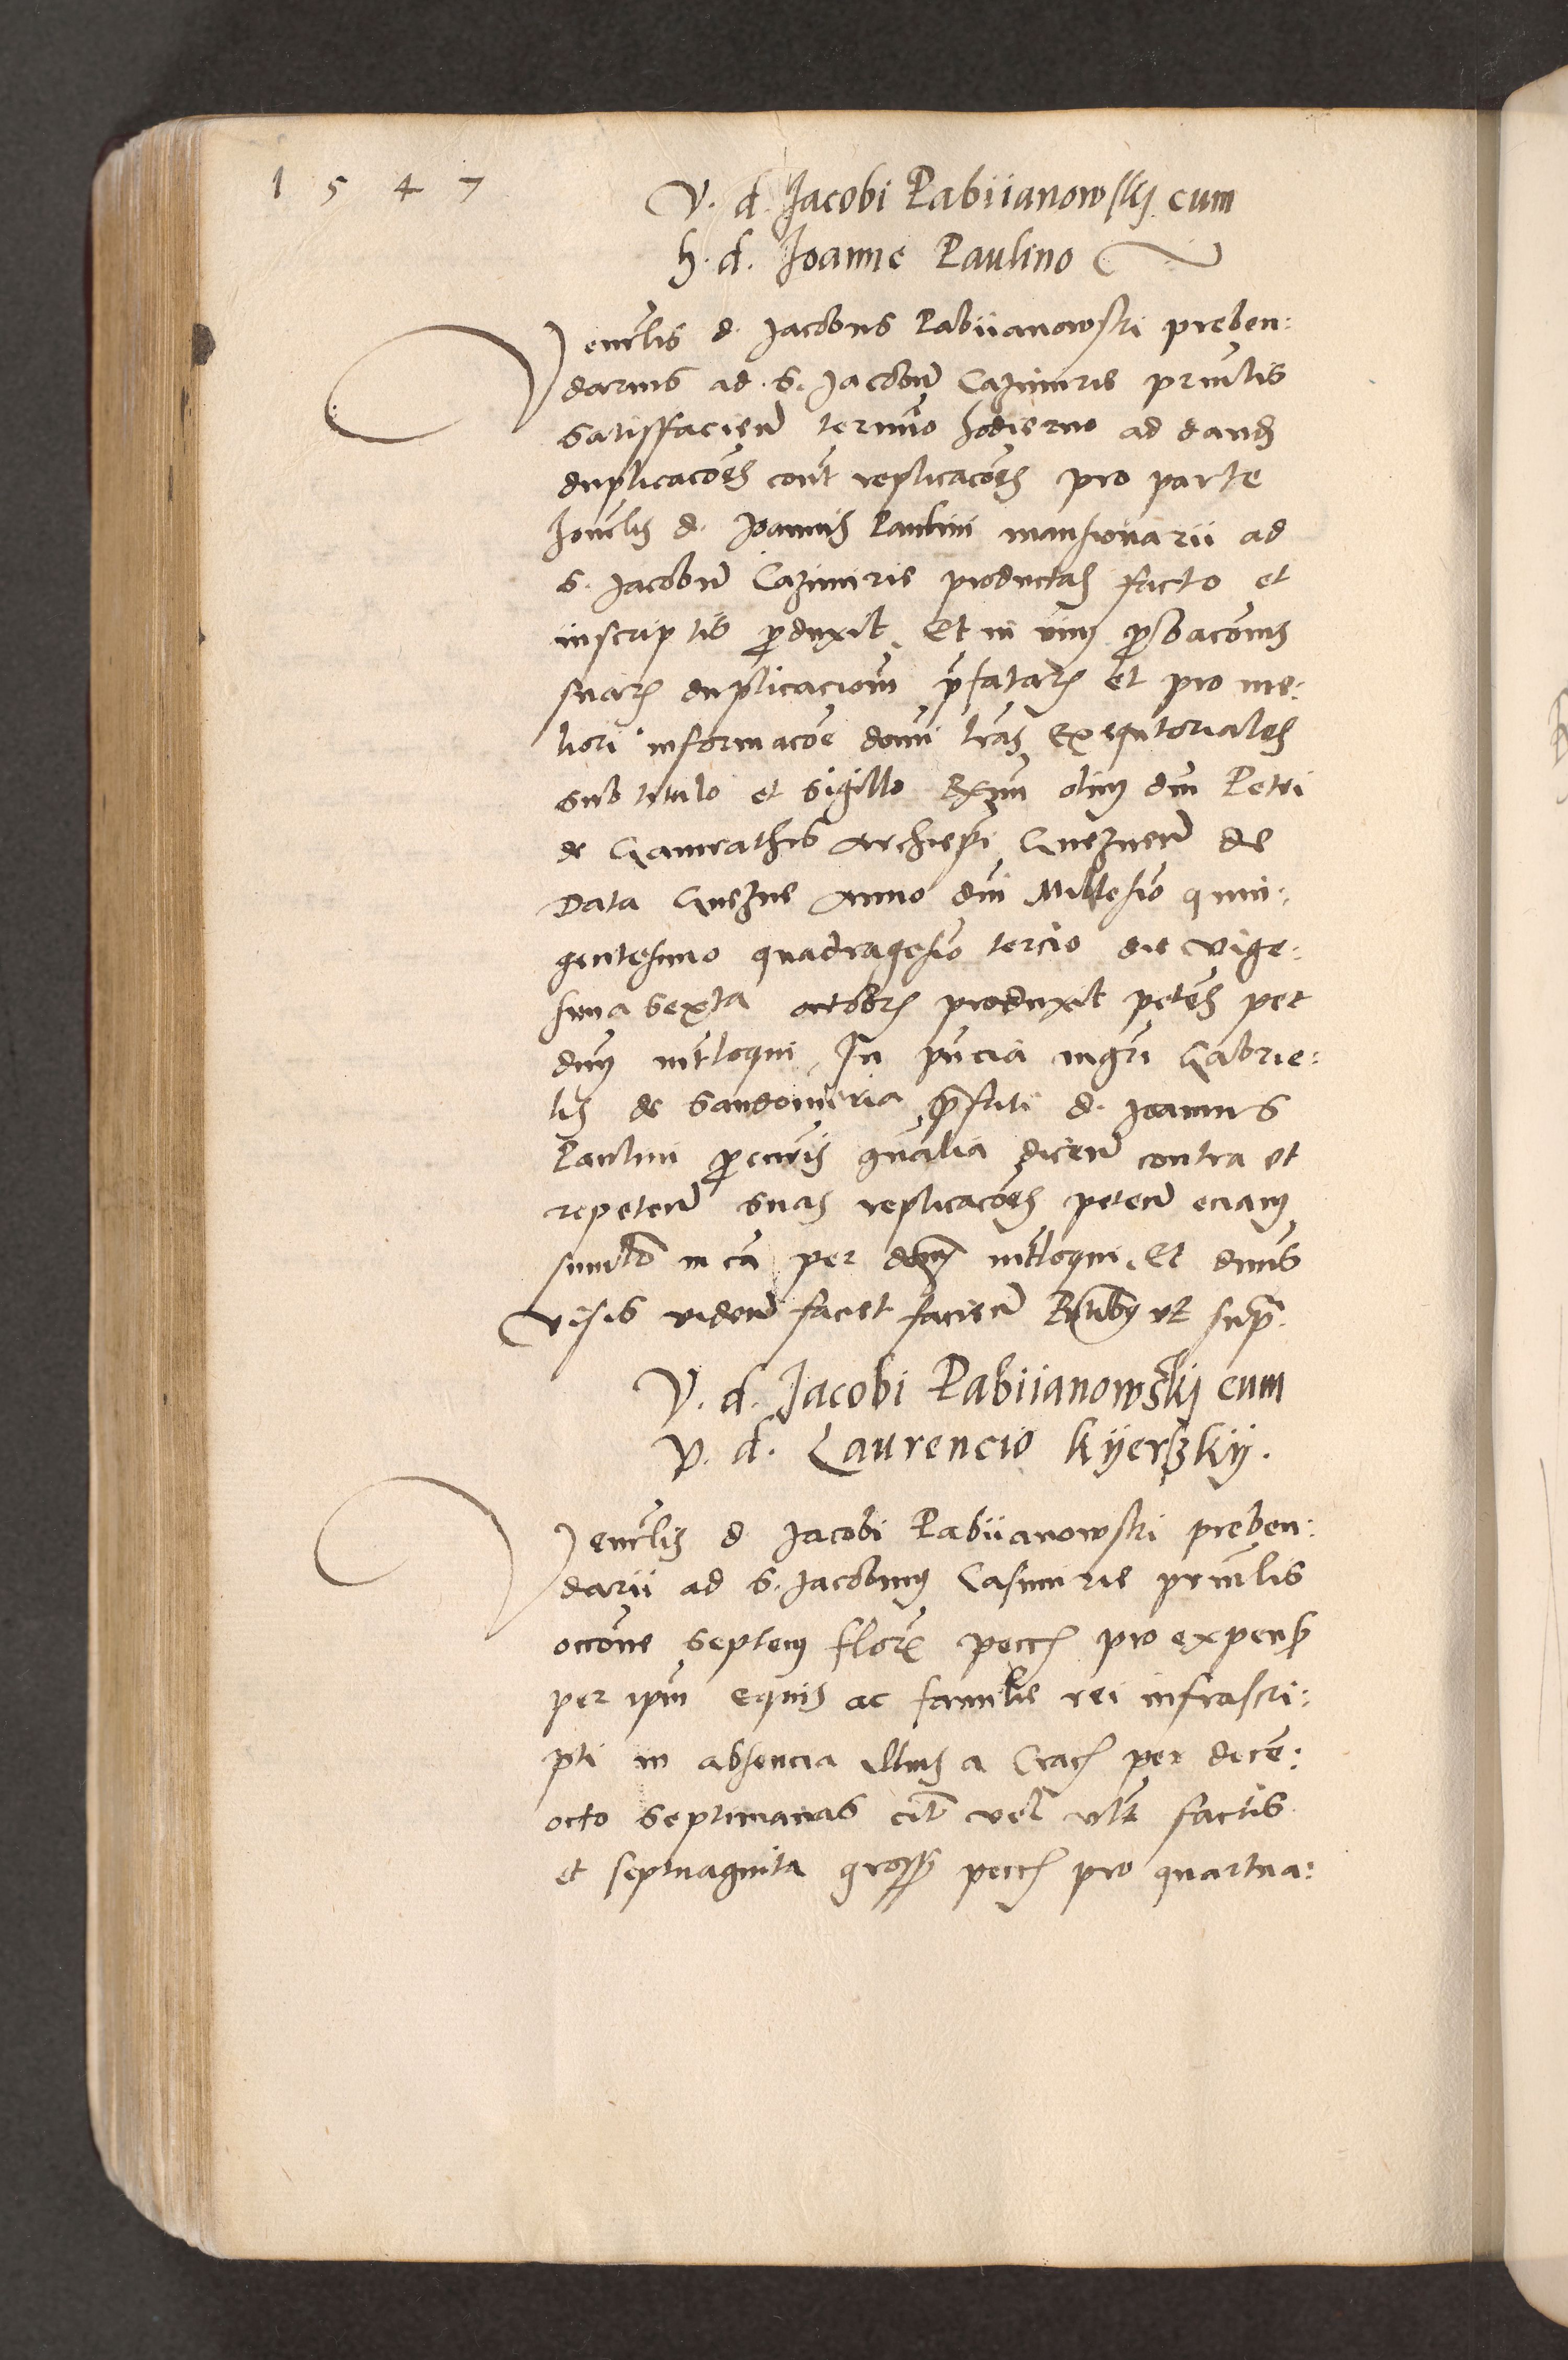 1 5 4 7
V. d. Jacobi Pabiianowskj cum
h. d. Joanne Paulino
Venerlis d. Jacobus Pabiianowski preben:
darius ad. S. Jacobum Cazimirie prinlis
satisfacien termino hodierno ad dand
duplicacões cont replicacões pro parte
honrlis d. Joannis Paulini mansionarii ad
S. Jacobum Cazimirie productas facto et
inscriptis produxit. Et in vim probaconis
suarum duplicacionum prefatarum et pro me:
liori informacõe domini lras Exequtoriales
sub titulo et sigillo Rxmi olim dni Petri
de Gamrathis Archiepi Gneznen de
Data Gnezne Anno dni Millesimo quin:
gentesimo quadragesimo tercio die vige:
sima sexta octobris produxit petens per
dnum interloqui, In pncia mgri Gabrie:
lis de Sandomiria prefati d. Joannis
Paulini procuris gnalia dicen contra et
repeten suas replicacões peten eciam
similr in ca per dnum interloqui. Et dnus
visis viden faciet facien Rtibus ut supra.
V. d. Jacobi Pabiianowskj cum
V. d. Laurencio Kÿerskÿ.
Venerlis d. Jacobi Pabiianowski preben:
darii ad S. Jacobum Casimirie prinlis
occõne septem florenorum pecc pro expens
per ipm equis ac familie rei infrascri:
pti in absencia illius a Crac per decem:
octo septimanas citra vel ultra factis
et septuaginta gross pecc pro quartua: